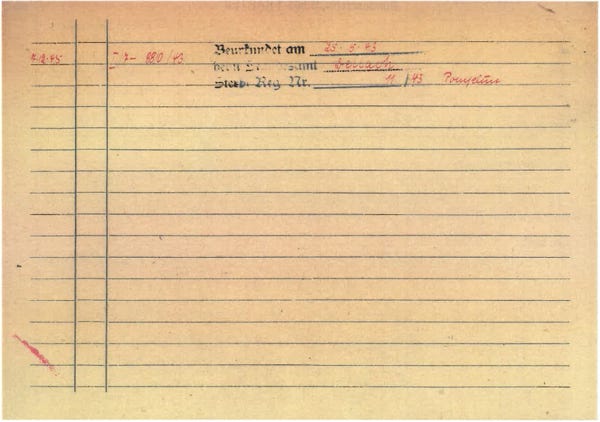 Beurkundet am 25. 5. 43
7.12.45 I 7- 880/43 beim Standesamt
Sterb. Reg Nr. 11/43